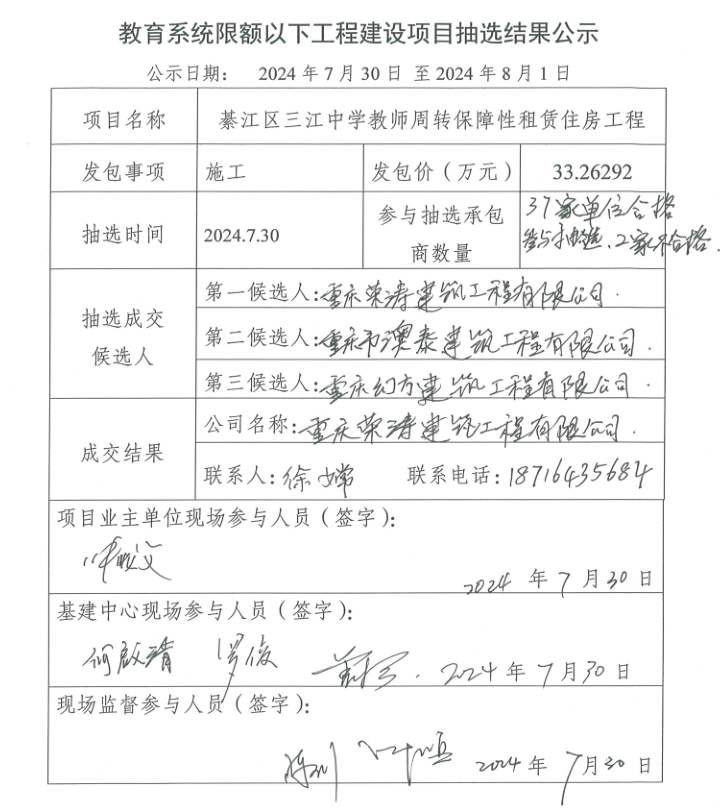 教育系统限额以下工程建设项目抽选结果公示
公示日期： 2024年7月30日 至2024年8月1日
项目名称 綦江区三江中学教师周转保障性租赁住房工程
发包事项 施工 发包价（万元） 33.26292
抽选时间 2024.7.30 参与抽选承包商数量 37家单位合格
参与抽选、2家不合格.
抽选成交候选人
第一候选人:重庆荣涛建筑工程有限公司.
第二候选人:重庆市澳泰建筑工程有限公司.
第三候选人:重庆幻方建筑工程有限公司.
成交结果
公司名称:重庆荣涛建筑工程有限公司.
联系人:徐嫦 联系电话:18716435684
项目业主单位现场参与人员（签字）:
2024年7月30日
基建中心现场参与人员（签字）:
何啟靖 罗俊 2024年7月30日
现场监督参与人员（签字）:
2024年7月30日